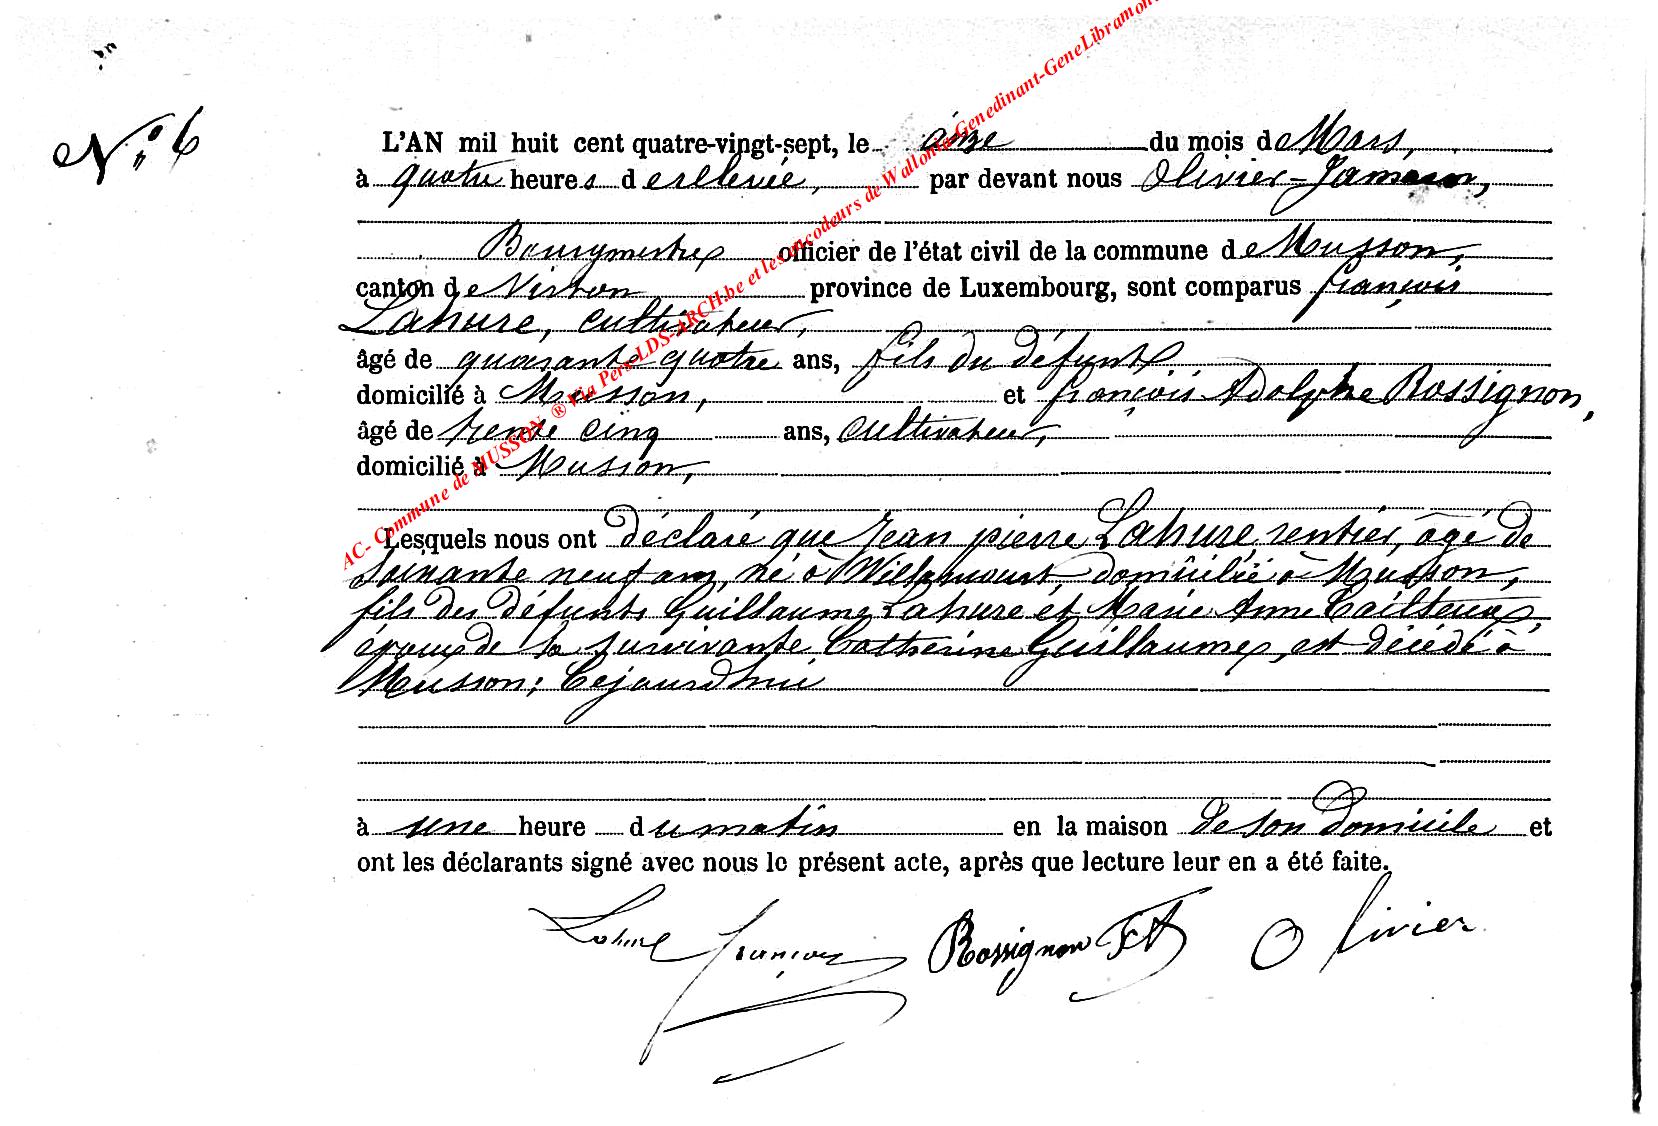 N° 6
L'AN mil huit cent quatre-vingt-sept, le onze du mois de Mars,
à quatre heures de relevée, par devant nous Olivier-Jamain,
Bourgmestre officier de l'état civil de la commune de Musson,
canton de Virton province de Luxembourg, sont comparus françois
Lahure, cultivateur,
âgé de quarante quatre ans, fils du défunt
domicilié à Musson, et françois Adolphe Rossignon,
âgé de trente cinq ans, cultivateur,
domicilié à Musson,
Lesquels nous ont déclaré que Jean pierre Lahure, rentier, âgé de
soixante neuf ans, né à Willancourt, domicilié à Musson,
fils des défunts Guillaume Lahure et Marie Anne Cailteux,
époux de la survivante Catherine Guillaume, est décédé à
Musson; Cejourd'hui
à une heure du matin en la maison de son domicile et
ont les déclarants signé avec nous le présent acte, après que lecture leur en a été faite.
Lahure françois Rossignon FA Olivier
AC- Commune de MUSSON ® Via Pers-LDS-ARCH.be et les encodeurs de Wallonia-Genedinant-GeneLibramon